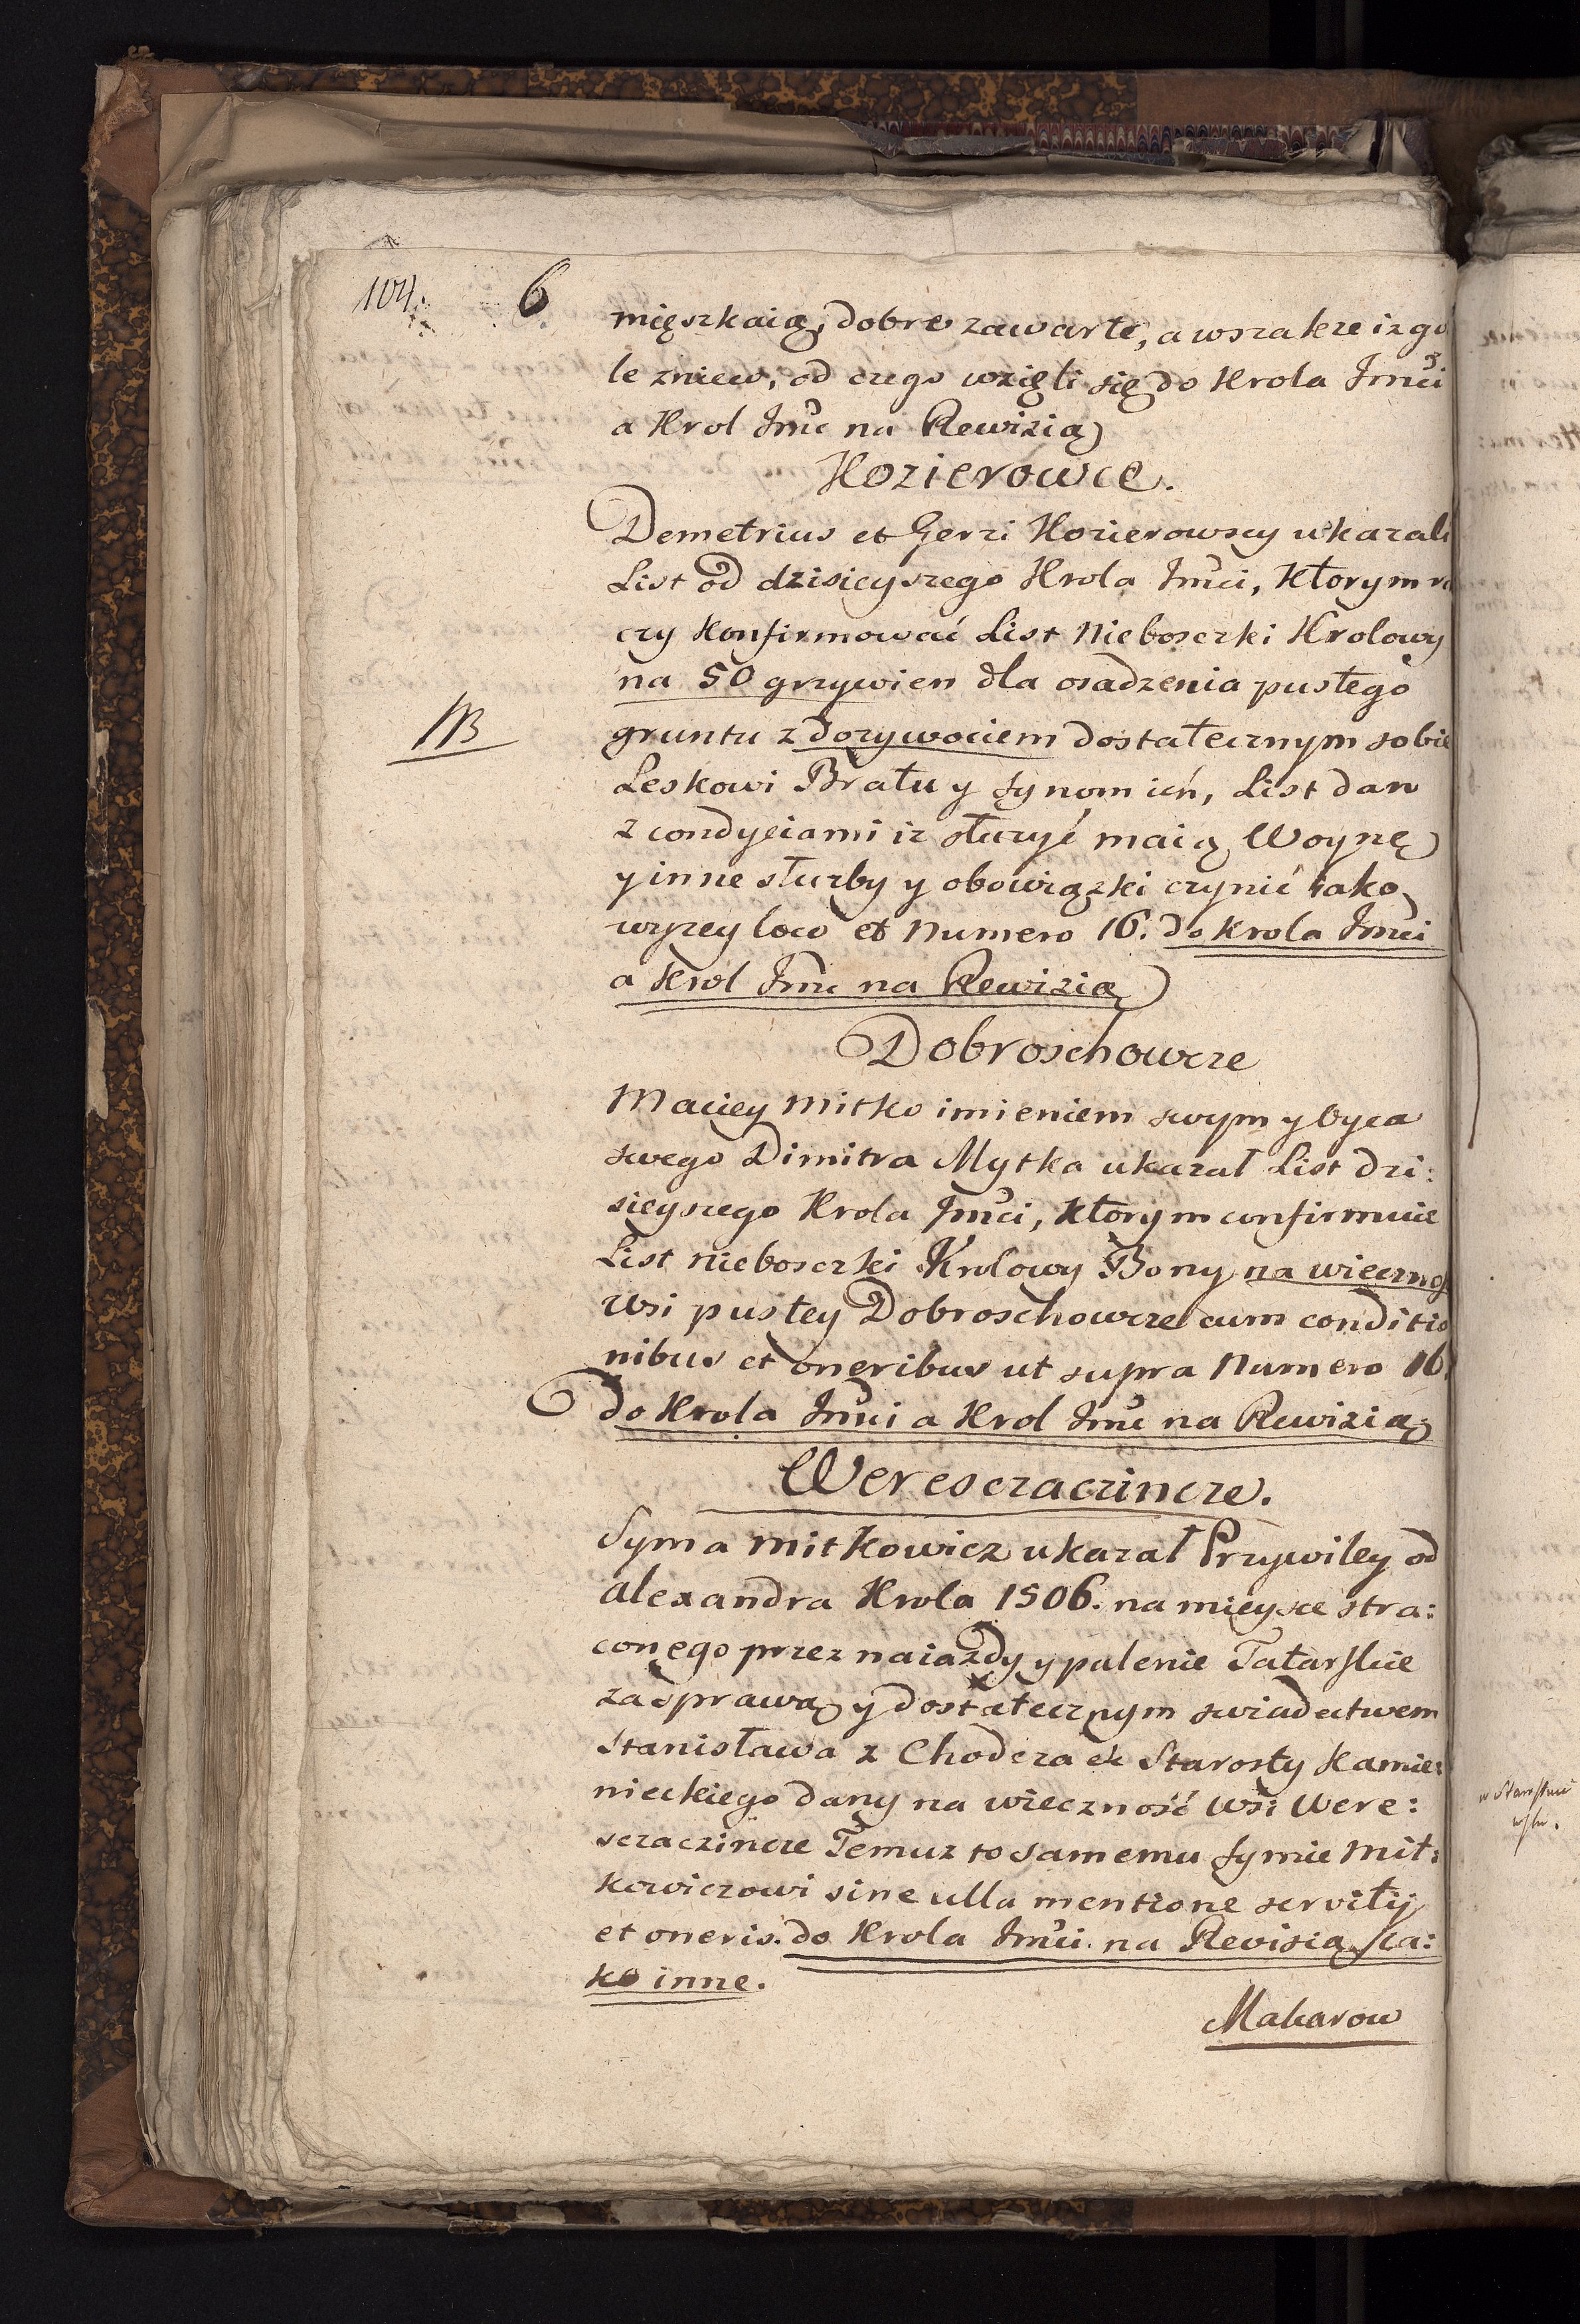 104. 6
mięszkaią, dobre zawarte, a wszakze iz go
le zniew, od czego wzięli się do Krola Jmci
a Krol Jmc na Rewizią
Kozierowce.
Demetrius et Gerzi Kozierowscy ukazali
List od dzisieyszego Krola Jmci, Ktorym ra
czy Konfirmować List Nieboszczki Krolowy
na 50 grzywien dla osadzenia pustego
NB
gruntu z dozywociem dostatecznym sobie
Leskowi Bratu y synom ich, List dan
z condyciami iz słuzyć maią Woynę
y inne słuzby y obowiązki czynić iako
wyzey loco et Numero 16. do Krola Jmci
a Krol Jmc na Rewizią
Dobroschowcze
Maciey Mitko imieniem swym y oyca
swego Dimitra Mytka ukazał List dzi:
sieyszego Krola Jmci, Ktorym confirmuie
List nieboszczki Krolowy Bony na wieczność
Wsi pustey Dobroschowcze cum conditio
nibus et oneribus ut supra Numero 16.
do Krola Jmci a Krol Jmc na Rewizią
Weresczaczincze.
Syma Mitkowicz ukazał Przywiley od
Alexandra Krola 1506. na mieysce stra:
conego przez naiazdy y palenie Tatarskie
za sprawą y dostatecznym swiadectwem
Stanisława z Chodcza ek Starosty Kamie:
nieckiego dany na wieczność Wsi Were:
sczaczincze Temuz to samemu Symie Mit:
kowiczowi sine ulla mentione servitij
et oneris. do Krola Jmci. na Revisią Ia:
ko inne.
Makarow